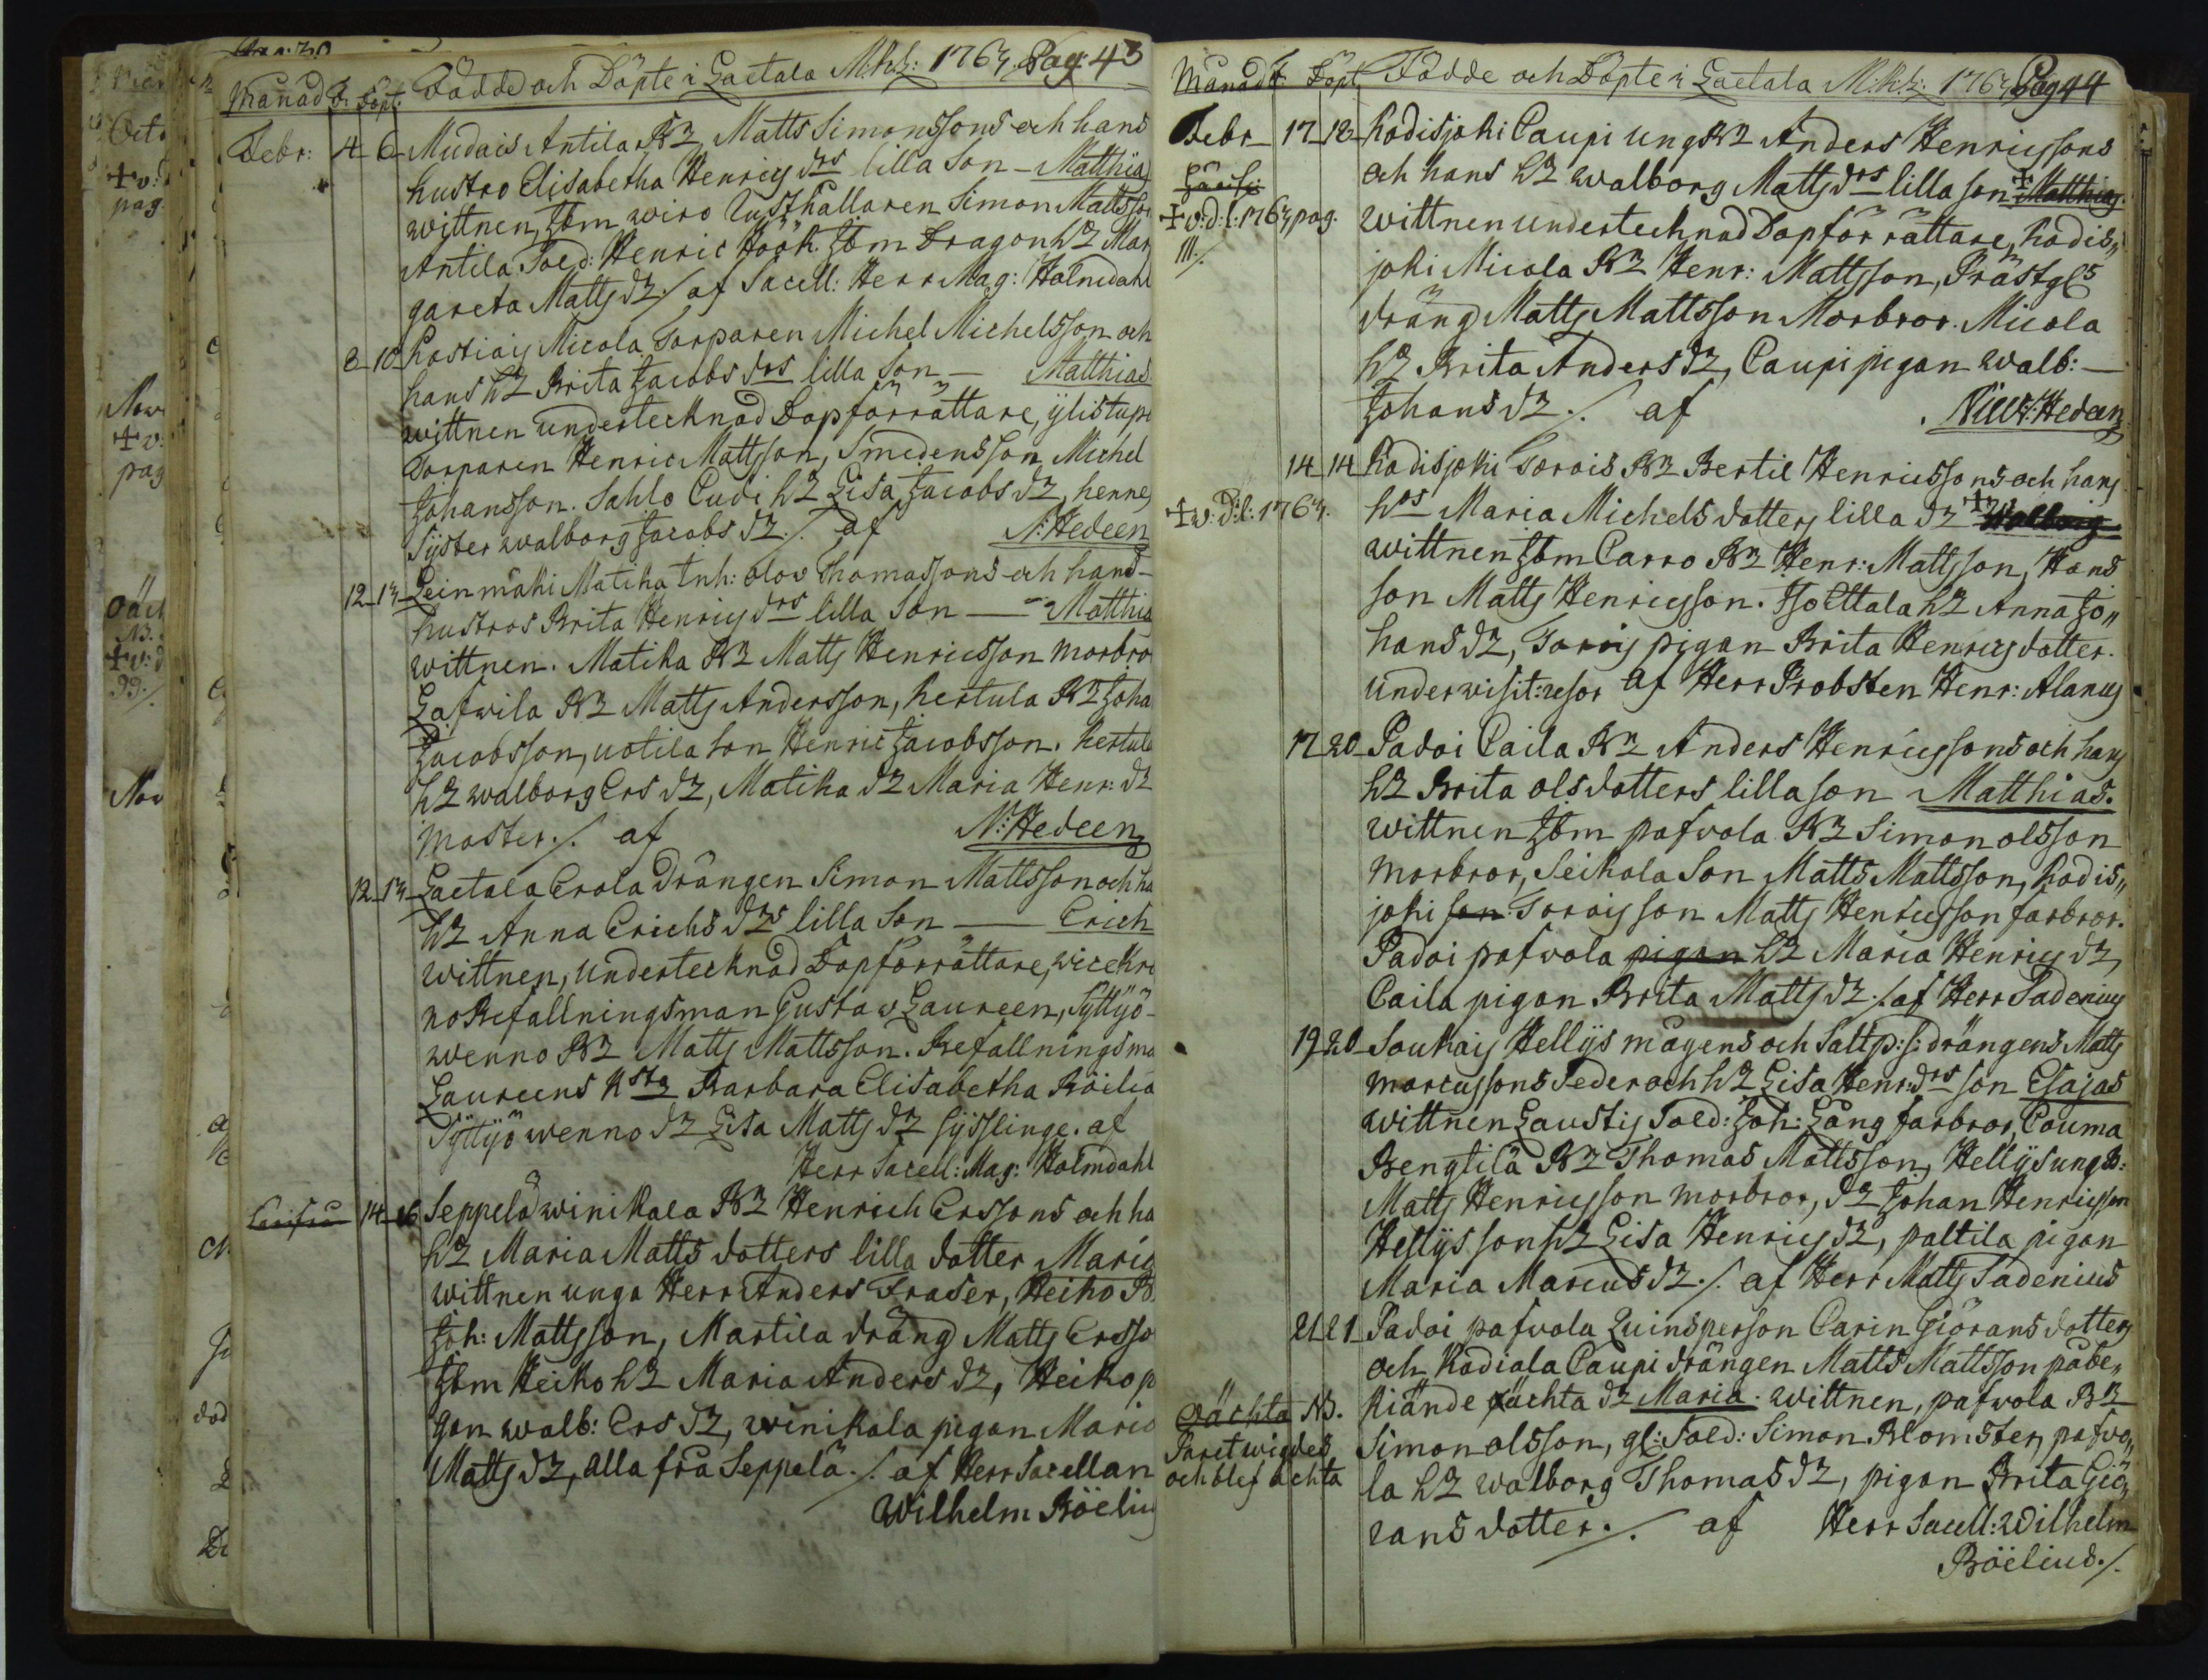 Månad F. Döpt. Födde och Döpte i Laetala M:k:l: 1764, Pag: 43
Febr: 4 6 Mudais Antila Bd Matts Simonssons och hans
hustro Elisabetha Henricsdrs lilla Son - Matthias
wittnen, Jbm wiro Rusthållaren Simon Mattsson
Antila Sold: Henric Höök. Jbm Dragon h: Mar
gareta Matts dr ./. af Sacell: Herr Mag: Holmdahl
8 10 Castiais Micola Torparen Michel Michelsson och
hans h: Brita Jacobs drs lilla Son - Matthias
wittnen undertecknad Dopförrättare, ylistupa
Torparen Henric Mattsson, Smedensson Michel
Johansson. Sahlo Cudi h: Lisa Jacobs dr, hennes
Syster walborg Jacobs dr ./. af N: Hedeen
12 13 Leinmäki Matika Inh: Olov Thomassons och hans
hustros Brita Henrics drs lilla Son - Matthias
wittnen. Matika Bd Matts Henricsson morbror
Lafwila Bd Matts Andersson, hertula Bd Joha
Jacobsson, uotila Son Henric Jacobsson. hertula
h: walborg Ers dr, Matika dr Maria Henr: dr
moster ./. af N: Hedeen
12 13 Laetala Erola Drängen Simon Mattsson och ha
h: Anna Erichs drs lilla Son - Erich
wittnen, undertecknad Dopförrättare, wice Kro
no Befallningsman Gustav Laureen, Syttyö-
wenno Bd Matts Mattsson. Befallningsma
Laureens hstr Barbara Elisabetha Böelia
Syttyö wenno dr Lisa Matts dr syslinge. af
Herr Sacell: Mag: Holmdahl
14 16 Seppelä winikala Bd Henrich Erssons och ha
h: Maria Matts dotters lilla dotter Maria
wittnen unga Herr Anders Fraser, Heiko B
Joh: Mattsson, Martila dräng Matts Ersso
Jbm Heiko h: Maria Anders dr, Heiko p
gan walb: Ers dr, winikala pigan Maria
Matts dr, alla fra Seppelä ./. af Herr Sacellan
Wilhelm Böelius
Månad F. Döpt Födde och Döpte i Laetala M:k:l: 1764, Pag 44
Febr 17 18 Kodisjoki Caupi ung Bd Anders Henricssons
och hans h: walborg Matts drs lilla son + Matthias.
+ v: d: l: 1764, pag. wittnen undertechnad Dopförrättare, Kodis,,
111./. joki Micola Bd Henr: Mattsson, Prästgls
dräng Matts Mattsson Morbror. Micola
h: Brita Anders dr, Caupi pigan walb: -
Johans dr ./. af Nils: Hedeen
14 14 Kodisjoki Torois Bd Bertil Henricssons och hans
+ v: d: l: 1764. hrs Maria Michels dotters lilla dr + Walborg
wittnen Jbm Carro Bd Henr: Mattsson, Hans
son Matts Henricsson. Iso Ettala h: Anna Jo,,
hans dr, Torois pigan Brita Henrics dotter.
under visit: resor af Herr Probsten Henr: Alanus
17 20 Padoi Caila Bd Anders Henricssons och hans
h: Brita Ols dotters lilla son Matthias.
wittnen Jbm pafwola Bd Simon Olsson
morbror, Seikola Son Matts Mattsson, Kodis,,
joki son Torois son Matts Henricsson farbror.
Padoi pafwola pigan h: Maria Henrics dr,
Caila pigan Brita Matts dr ./. af Herr Tadenius
19 20 Soukais Hellys mågens och Saltp: s: drängens Matts
Marcussons Feder och h: Lisa Henr: drs son Esajas
wittnen Laustis Sold: Joh: Lång farbror, Couma
Bengtilä Bd Thomas Mattsson, Hellys ung B:
Matts Henricsson morbror, dr Johan Henricsson
Hellys son h: Lisa Henrics dr, paltila pigan
Maria Marcus dr ./. af Herr Matts Tadenius
21 21 Padoi pafwola Quinsperson Carin Giörans dotters
och Kodiala Caupi drängen Matts Mattsson påbe,,
oächta NB. kiände oächta dr Maria. wittnen, pafwola Bd
Paret wigdes Simon olsson, gl: Sold: Simon Blomster, pafwo,,
och blef ächta la h: walborg Thomas dr, pigan Brita Giö,,
rans dotter ./. af Herr Sacell: Wilhelm
Böelius ./.